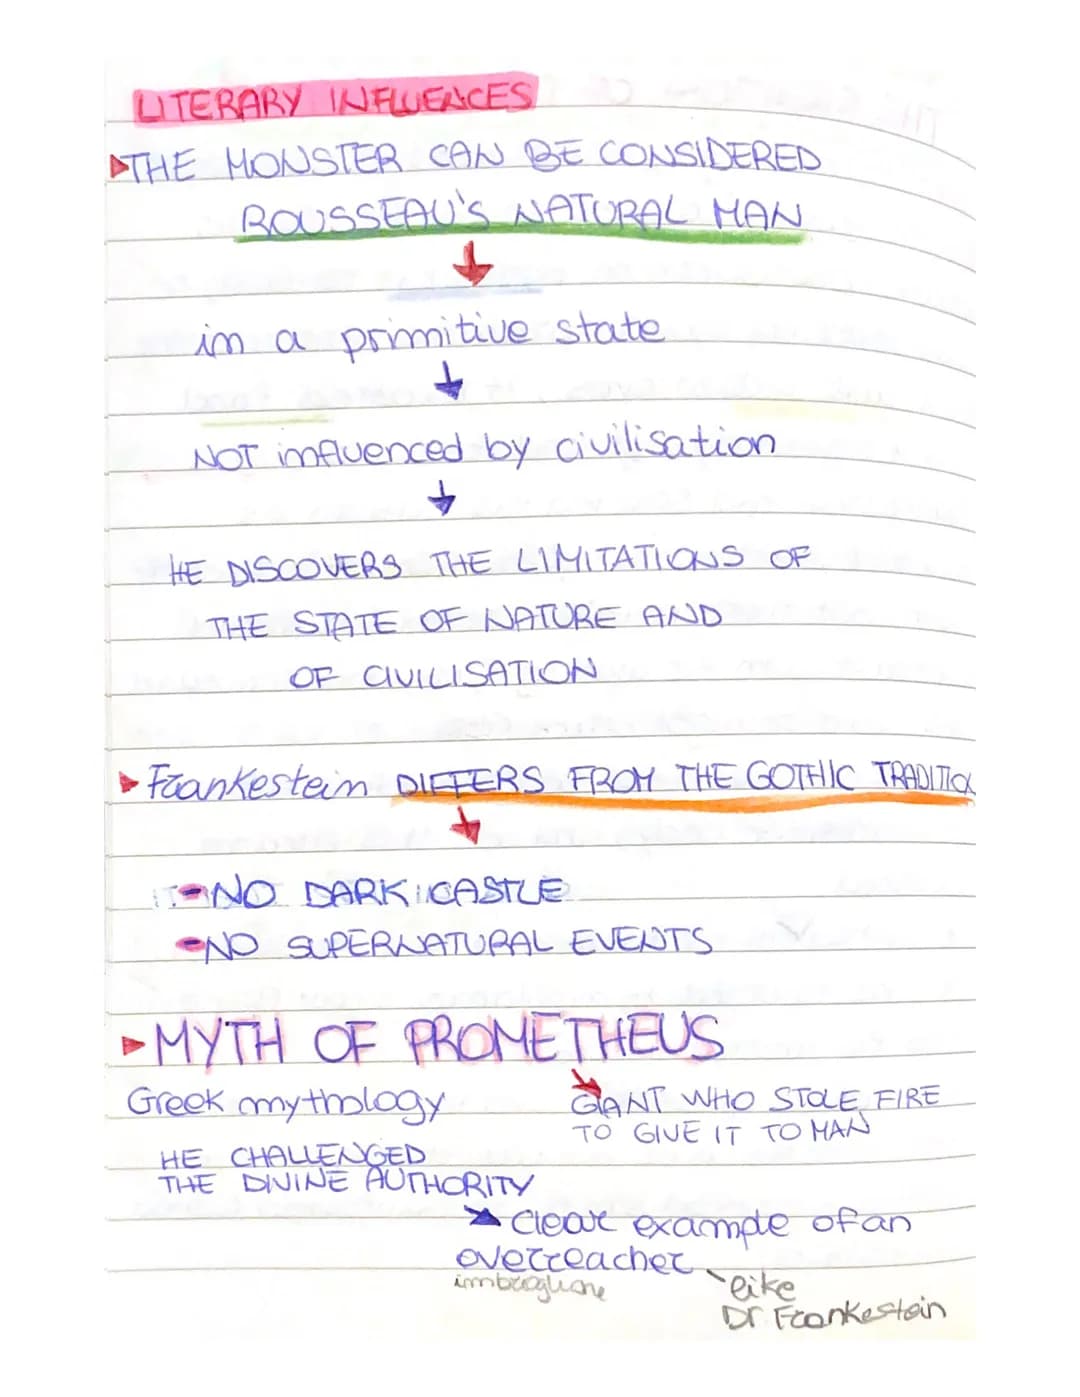 LITERARY INFLUENCES
THE MONSTER CAN BE CONSIDERED
ROUSSEAU'S NATURAL MAN
in a primitive state
NOT influenced by civilisation
HE DISCOVERS THE LIMITATIONS OF
THE STATE OF NATURE AND
OF CIVILISATION
Frankestein DIFFERS FROM THE GOTHIC TRADITION
-NO DARK CASTLE
-NO SUPERNATURAL EVENTS
MYTH OF PROMETHEUS
Greek mythology
GIANT WHO STOLE FIRE
TO GIVE IT TO MAN
HE CHALLENGED
THE DIVINE AUTHORITY
Clear example of an
overreacher
imbroglione
like
Dr Frankestein